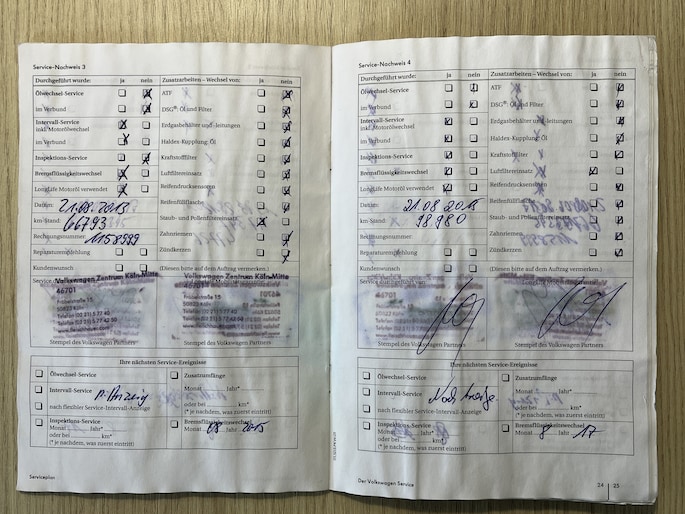 Service-Nachweis 3
Durchgeführt wurde: ja nein Zusatzarbeiten – Wechsel von: ja nein
Ölwechsel-Service ATF
im Verbund DSG®: Öl und Filter
Intervall-Service Erdgasbehälter und -leitungen
inkl. Motorölwechsel
im Verbund Haldex-Kupplung: Öl
Inspektions-Service Kraftstofffilter
Bremsflüssigkeitswechsel Luftfiltereinsatz
LongLife Motoröl verwendet Reifendrucksensoren
Datum: 21.08.2013 Reifenfüllflasche
km-Stand: 66793 Staub- und Pollenfiltereinsatz
Rechnungsnummer: 1158599 Zahnriemen
Reparaturempfehlung Zündkerzen
Kundenwunsch (Diesen bitte auf dem Auftrag vermerken.)
Volkswagen Zentrum Köln-Mitte Volkswagen Zentrum Köln-Mitte
46701
Fröbelstraße 15
50823 Köln
Stempel des Volkswagen Partners Stempel des Volkswagen Partners
Ihre nächsten Service-Ereignisse
Ölwechsel-Service Zusatzumfänge
Intervall-Service Monat Jahr*
oder bei km*
nach flexibler Service-Intervall-Anzeige (* je nachdem, was zuerst eintritt)
Inspektions-Service Bremsflüssigkeitswechsel
Monat Jahr* Monat 08 Jahr 2015
oder bei km*
(* je nachdem, was zuerst eintritt)
Serviceplan
Service-Nachweis 4
Durchgeführt wurde: ja nein Zusatzarbeiten – Wechsel von: ja nein
Ölwechsel-Service ATF
im Verbund DSG®: Öl und Filter
Intervall-Service Erdgasbehälter und -leitungen
inkl. Motorölwechsel
im Verbund Haldex-Kupplung: Öl
Inspektions-Service Kraftstofffilter
Bremsflüssigkeitswechsel Luftfiltereinsatz
LongLife Motoröl verwendet Reifendrucksensoren
Datum: 21.08.2015 Reifenfüllflasche
km-Stand: 98.980 Staub- und Pollenfiltereinsatz
Rechnungsnummer: Zahnriemen
Reparaturempfehlung Zündkerzen
Kundenwunsch (Diesen bitte auf dem Auftrag vermerken.)
Service durchgeführt von:
Stempel des Volkswagen Partners Stempel des Volkswagen Partners
Ihre nächsten Service-Ereignisse
Ölwechsel-Service Zusatzumfänge
Intervall-Service Monat Jahr*
oder bei km*
nach flexibler Service-Intervall-Anzeige (* je nachdem, was zuerst eintritt)
Inspektions-Service Bremsflüssigkeitswechsel
Monat Jahr* Monat 8 Jahr 17
oder bei km*
(* je nachdem, was zuerst eintritt)
Der Volkswagen Service 24 | 25